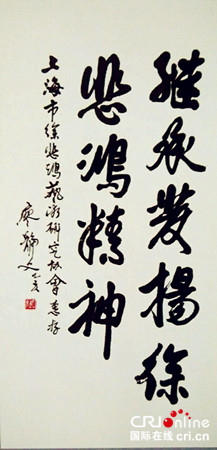 继承发扬徐
悲鸿精神
上海市徐悲鸿艺术研究协会惠存
廖静文
CRIonline
国际在线 cri.cn